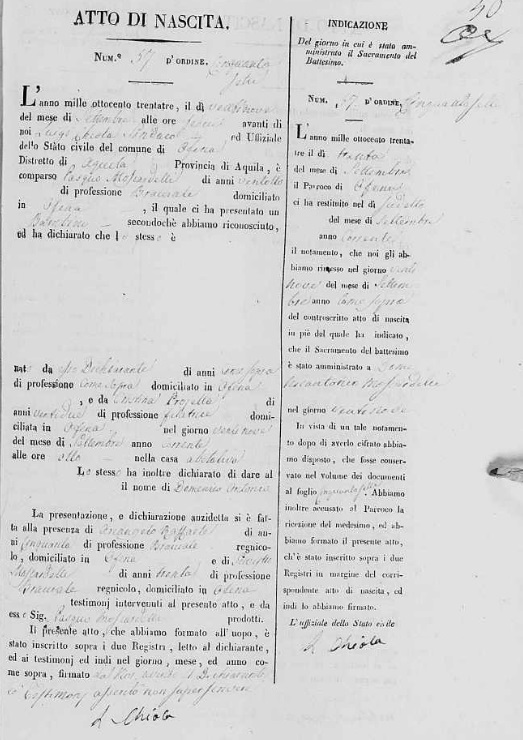 ATTO DI NASCITA.
NUM.º 57 D'ORDINE. Cinquanta
sette
L'anno mille ottocento trentatre, il dì ventinove
del mese di Settembre alle ore avanti di
noi Luigi Chiola Sindaco ed Uffiziale
dello Stato civile del comune di Ofena
Distretto di Aquila Provincia di Aquila, è
comparso Pasquale Mosciardelle di anni ventotto
di professione Bracciale domiciliato
in Ofena, il quale ci ha presentato un
secondochè abbiamo riconosciuto,
ed ha dichiarato che lo stesso è
nato da esso Dichiarante di anni come sopra
di professione come sopra domiciliato in Ofena
, e da Cristina di
anni ventidue di professione filatrice domi-
ciliata in Ofena nel giorno ventinove
del mese di Settembre anno corrente
alle ore otto nella casa
Lo stesso ha inoltre dichiarato di dare al
il nome di Domenico Antonio
La presentazione, e dichiarazione anzidetta si è fat-
ta alla presenza di Arcangelo Raffaele di an-
ni cinquanta di professione Bracciale regnico-
lo, domiciliato in Ofena e di
Mosciardelle di anni trenta di professione
Bracciale regnicolo, domiciliato in Ofena
testimonj intervenuti al presente atto, e da
esso Sig. Pasquale Mosciardelle prodotti.
Il presente atto, che abbiamo formato all'uopo, è
stato inscritto sopra i due Registri, letto al dichiarante,
ed ai testimonj ed indi nel giorno, mese, ed anno co-
me sopra, firmato dal Noi, avendo il Dichiarante
e Testimonj asserito non saper scrivere
L. Chiola
50
INDICAZIONE
Del giorno in cui è stato am-
ministrato il Sacramento del
Battesimo.
NUM. 57 D'ORDINE, Cinquantasette
L'anno mille ottocento trenta-
tre il dì trenta
del mese di Settembre
il Parroco di Ofena
ci ha restituito nel dì
del mese di Settembre
anno corrente
il notamento, che noi gli ab-
biamo rimesso nel giorno venti
nove del mese di Settem
bre anno come sopra
del controscritto atto di nascita
in piè del quale ha indicato,
che il Sacramento del battesimo
è stato amministrato a Dome
nicantonio Mosciardelle
nel giorno
In vista di un tale notamento
dopo di averlo cifrato abbiamo
disposto, che fosse conser-
vato nel volume dei documenti
al foglio cinquantasette. Abbiamo
inoltre accusato al Parroco la
ricezione del medesimo, ed ab-
biamo formato il presente atto,
ch'è stato inscritto sopra i due
Registri in margine del corri-
spondente atto di nascita, ed
indi lo abbiamo firmato.
L'uffiziale dello Stato civile
L. Chiola